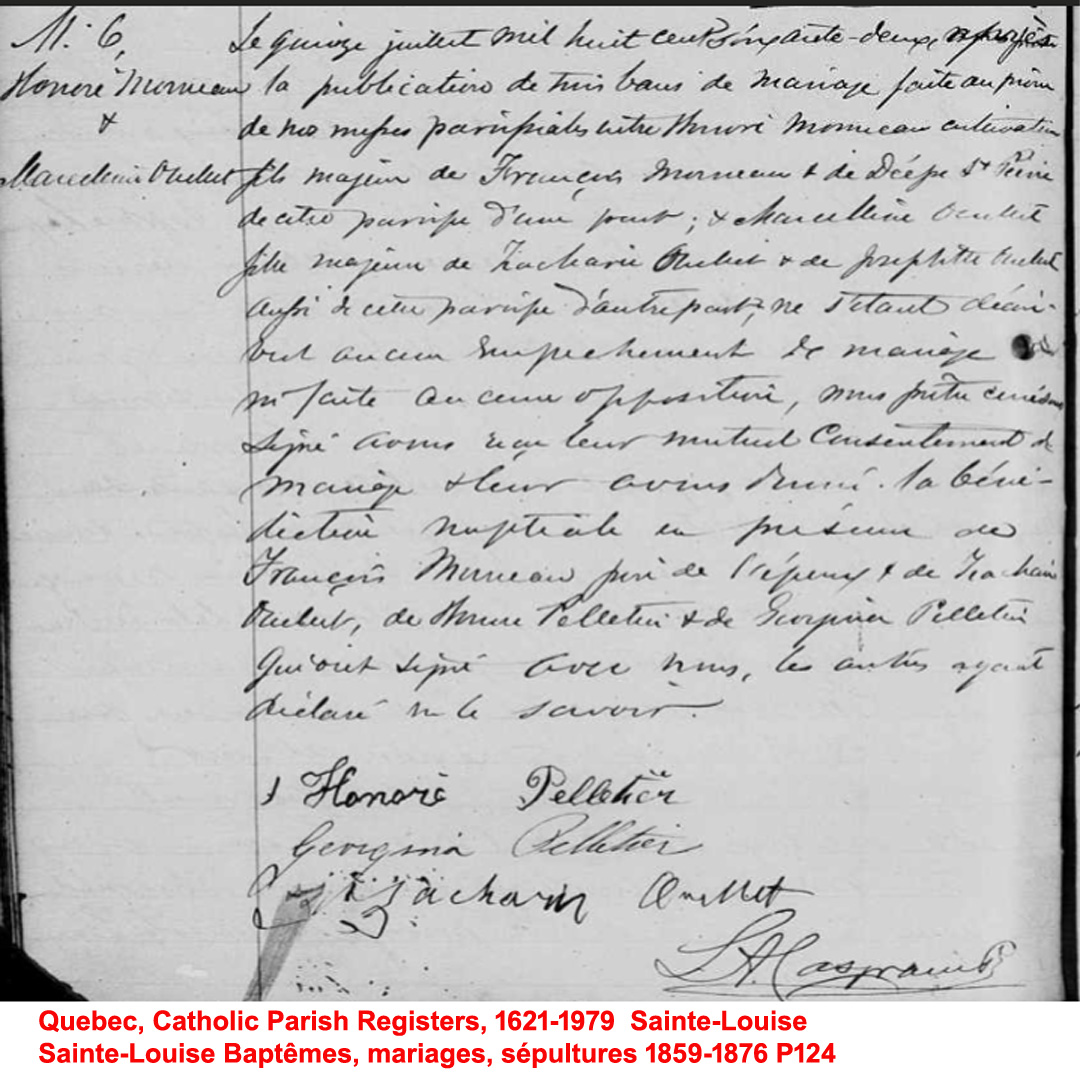 M. 6,
Honoré Morneau
&
Marcelline Ouellet
Le quinze juillet mil huit cent soixante-deux,
la publication de trois bans de mariage faite au prône
de nos messes paroissiales entre Honoré Morneau cultivateur
fils majeur de François Morneau & de Désépe St Pierre
de cette paroisse d'une part; & Marcelline Ouellet
fille majeure de Zacharie Ouellet & de Josephette Ouellet
aussi de cette paroisse d'autre part, ne s'étant décou-
vert aucun empechement de mariage
ni faite aucune opposition, nous prêtre curé sous
signé avons reçu leur mutuel consentement de
mariage & leur avons donné la béné-
diction nuptiale en présence de
François Morneau père de l'époux & de Zacharie
Ouellet, de Honoré Pelletier & de Georgina Pelletier
qui ont signé avec nous, les autres ayant
déclaré ne le savoir.
Honoré Pelletier
Georgina Pelletier
Zacharie Ouellet
L. A. Casgrain Ptr
Quebec, Catholic Parish Registers, 1621-1979 Sainte-Louise
Sainte-Louise Baptêmes, mariages, sépultures 1859-1876 P124